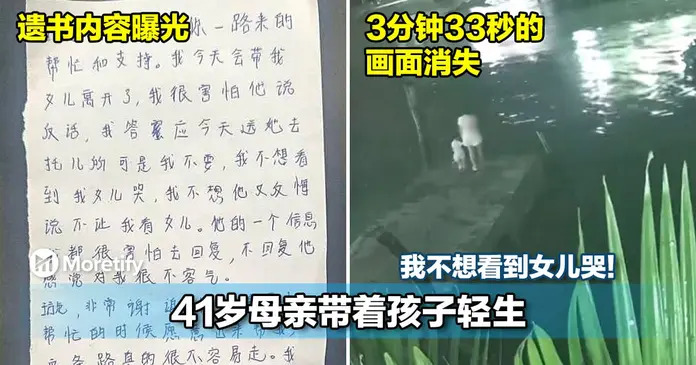 遗书内容曝光
你一路来的
帮忙和支持。我今天会带我
女儿离开了,我很害怕他说
反话,我答应今天送她去
托儿所可是我不要,我不想看
到我女儿哭,我不想他又反悔
说不让我看女儿。他的一个信息
都很害怕去回复,不回复他
说对我很不客气。
非常谢
帮忙的时候愿意
条路真的很不容易走。我
Moretify
3分钟33秒的
画面消失
我不想看到女儿哭!
41岁母亲带着孩子轻生